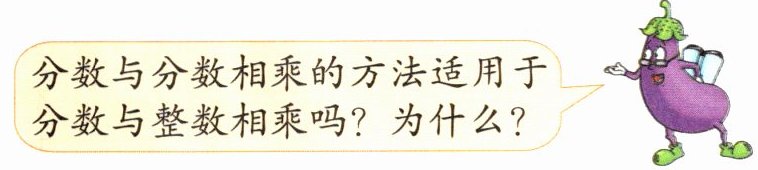 分数与分数相乘的方法适用于
分数与整数相乘吗？为什么？